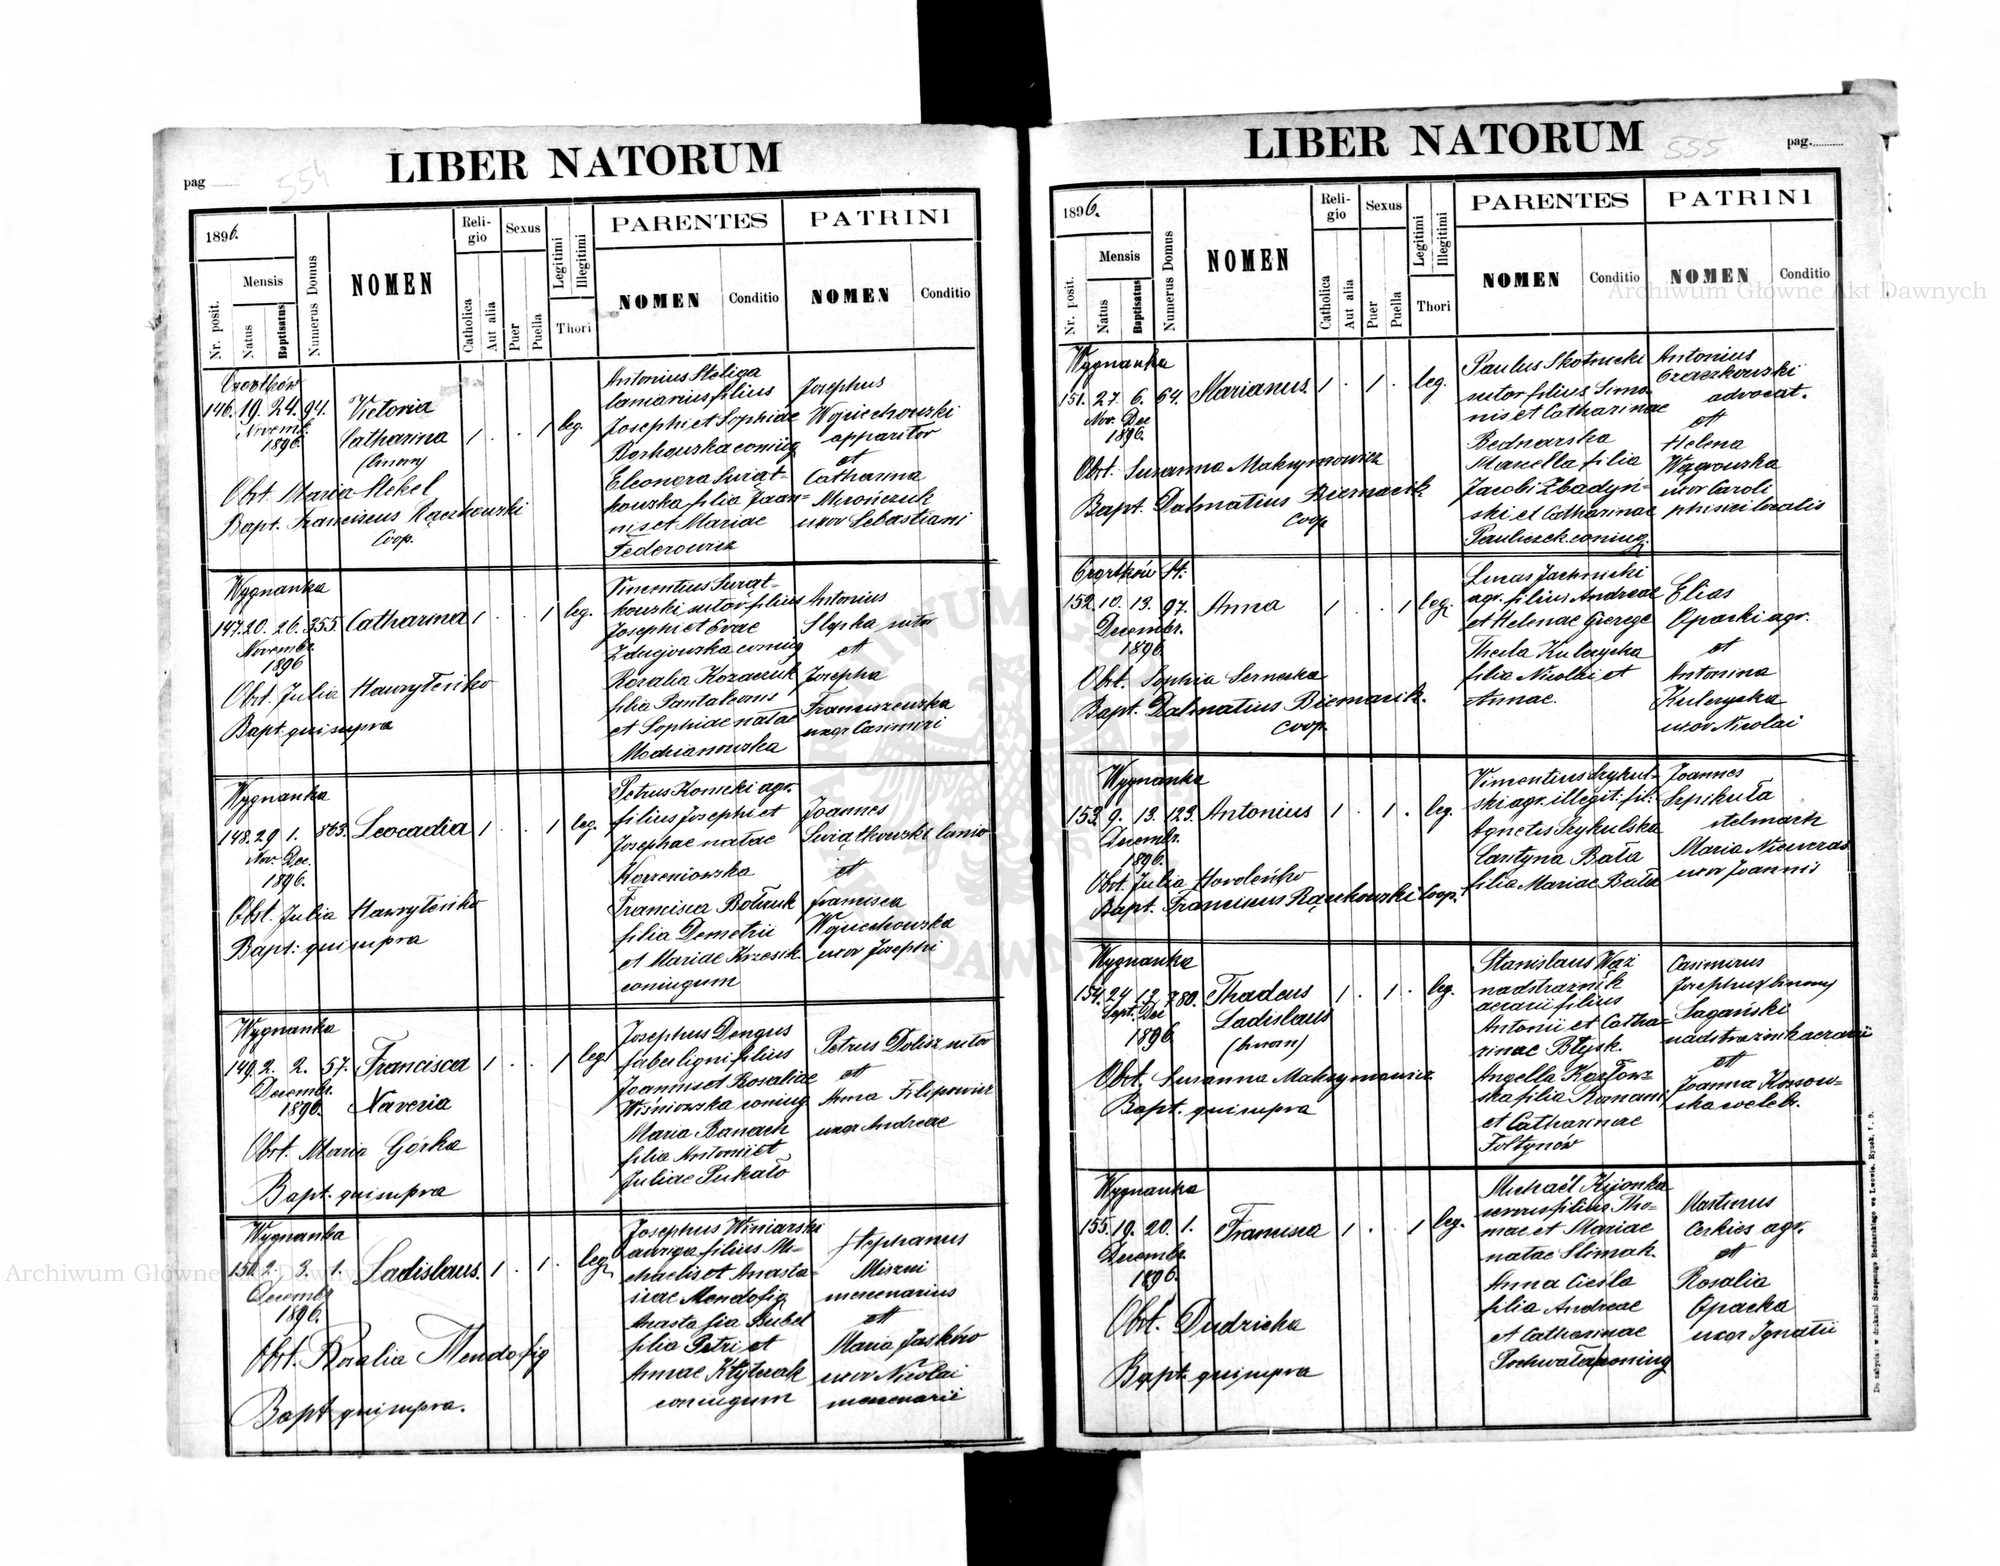 LIBER NATORUM
pag ......... 554
1896.
Mensis
Nr. posit.
Natus
Baptisatus
Numerus Domus
NOMEN
Religio
Catholica
Aut alia
Sexus
Puer
Puella
Legitimi
Illegitimi
Thori
PARENTES
NOMEN
Conditio
PATRINI
NOMEN
Conditio
Czortków
146. 19. 24. 94. Victoria
Novemb.
1896. Catharina
(binom)
1 . . 1 leg.
Obst. Maria Stekel
Bapt. Franciscus Rączkowski
Coop.
Antonius Stoliga
lanarius filius
Josephi et Sophiae
coniug
Eleonora Swiąt-
kowska filia Joan-
nis et Mariae
Federowicz
Josephus
Wojciechowski
apparitor
et
Catharina
Mrończuk
uxor Sebastiani
Wygnanka
147. 20. 26. 355. Catharina 1 . . 1 leg.
Novembr.
1896
Obst. Julia Hawryleńko
Bapt. qui supra
Vincentius Swiąt-
kowski sutor filius
Josephi et Evae
coniug
Rosalia Kozaczuk
filia Pantaleonis
et Sophiae natae
Antonius
Slypka sutor
et
Josepha
Franciszewska
uxor Casimiri
Wygnanka
148. 29. 1. 863. Leocadia 1 . . 1 leg.
Nov. Dec.
1896.
Obst. Julia Hawryleńko
Bapt: qui supra
Petrus Konicki agr.
filius Josephi et
Josephae natae
Korzeniowska
Francisca
filia Demetrii
et Mariae Krzesik
coniugum
Joannes
Swiątkowski lanio
et
Francisca
Wojciechowska
uxor Josephi
Wygnanka
149. 2. 2. 57. Francisca 1 . . 1 leg.
Decembr.
1896. Xaveria
Obst. Maria Górka
Bapt. qui supra
Josephus Dengus
faber ligni filius
Joannis et Rosaliae
Wiśniowska coniug
Maria Banach
filia Antonii et
Juliae Pukało
Petrus Dolisz sutor
et
Anna Filipowicz
uxor Andreae
Wygnanka
150. 2. 3. 1. Ladislaus. 1 . 1 . leg.
Decembr
1896.
Obst. Rosalia Mendofig
Bapt qui supra.
Josephus Winiarski
auriga filius Mi-
chaelis et Anasta-
siae Mendofig
Anastasia Bubel
filia Petri et
Annae
coniugum
Stephanus
mercenarius
et
Maria Jasków
uxor Nicolai
mercenarii
LIBER NATORUM
555 pag. .........
1896.
Mensis
Nr. posit.
Natus
Baptisatus
Numerus Domus
NOMEN
Religio
Catholica
Aut alia
Sexus
Puer
Puella
Legitimi
Illegitimi
Thori
PARENTES
NOMEN
Conditio
PATRINI
NOMEN
Conditio
Wygnanka
151. 27. 6. 64. Marianus. 1 . 1 . leg.
Nov. Dec
1896.
Obst. Susanna Maksymowicz
Bapt. Dalmatius Biernacik
Coop
Paulus Skotnicki
sutor filius Simo-
nis et Catharinae
Bednarska
Marcella filia
Jacobi Zbadyń-
ski et Catharinae
Pauliczek coniug.
Antonius
Czaczkowski
advocat.
et
Helena
Wągrowska
uxor Caroli
phisici localis
Czortków St.
152. 10. 13. 97. Anna 1 . . 1 leg.
Decembr.
1896
Obst. Sophia Sernecka
Bapt. Dalmatius Biernacik.
Coop.
Lucas Jachnicki
agr. filius Andreae
et Helenae
Thecla Kulczycka
filia Nicolai et
Annae.
Elias
Opacki agr.
et
Antonina
Kulczycka
uxor Nicolai
Wygnanka
153. 9. 13. 123. Antonius 1 . 1 . leg.
Decembr.
1896.
Obst. Julia Horoleńko
Bapt. Franciscus Rączkowski Coop.
Vincentius Szykul-
ski agr. illegit: fil:
Agnetis Szykulska
Justyna Bała
filia Mariae Bała
Joannes
Szpikuła
stelmach
Maria
uxor Joannis
Wygnanka
154. 24 13. 780. Thadeus 1 . 1 . leg.
Sept. Dec
1896 Ladislaus
(binom)
Obst. Susanna Maksymowicz
Bapt. qui supra
Stanislaus Wąż
nadstrażnik
aerarii filius
Antonii et Catha-
rinae Błysk.
Angella Kozłow-
ska filia Romani
et Catharinae
Foltynów
Casimirus
Josephus (binom)
Sagański
nadstrażnik aerarii
et
Joanna Kossow-
ska celeb.
Wygnanka
155. 19. 20. 1. Francisca 1 . . 1 leg.
Decembr.
1896.
Obst. Dudzicha
Bapt. qui supra
Michaël Kijonka
servus filius Tho-
mae et Mariae
natae Slimak.
Anna Cieśla
filia Andreae
et Catharinae
Pochwała coniug
Martinus
Cerkies agr.
et
Rosalia
Opacka
uxor Ignatii
Do nabycia: w drukarni Szczęsnego Bednarskiego we Lwowie, Rynek, l. 9.
Archiwum Główne Akt Dawnych
Archiwum Główne Akt Dawnych
ARCHIWUM GŁÓWNE AKT DAWNYCH